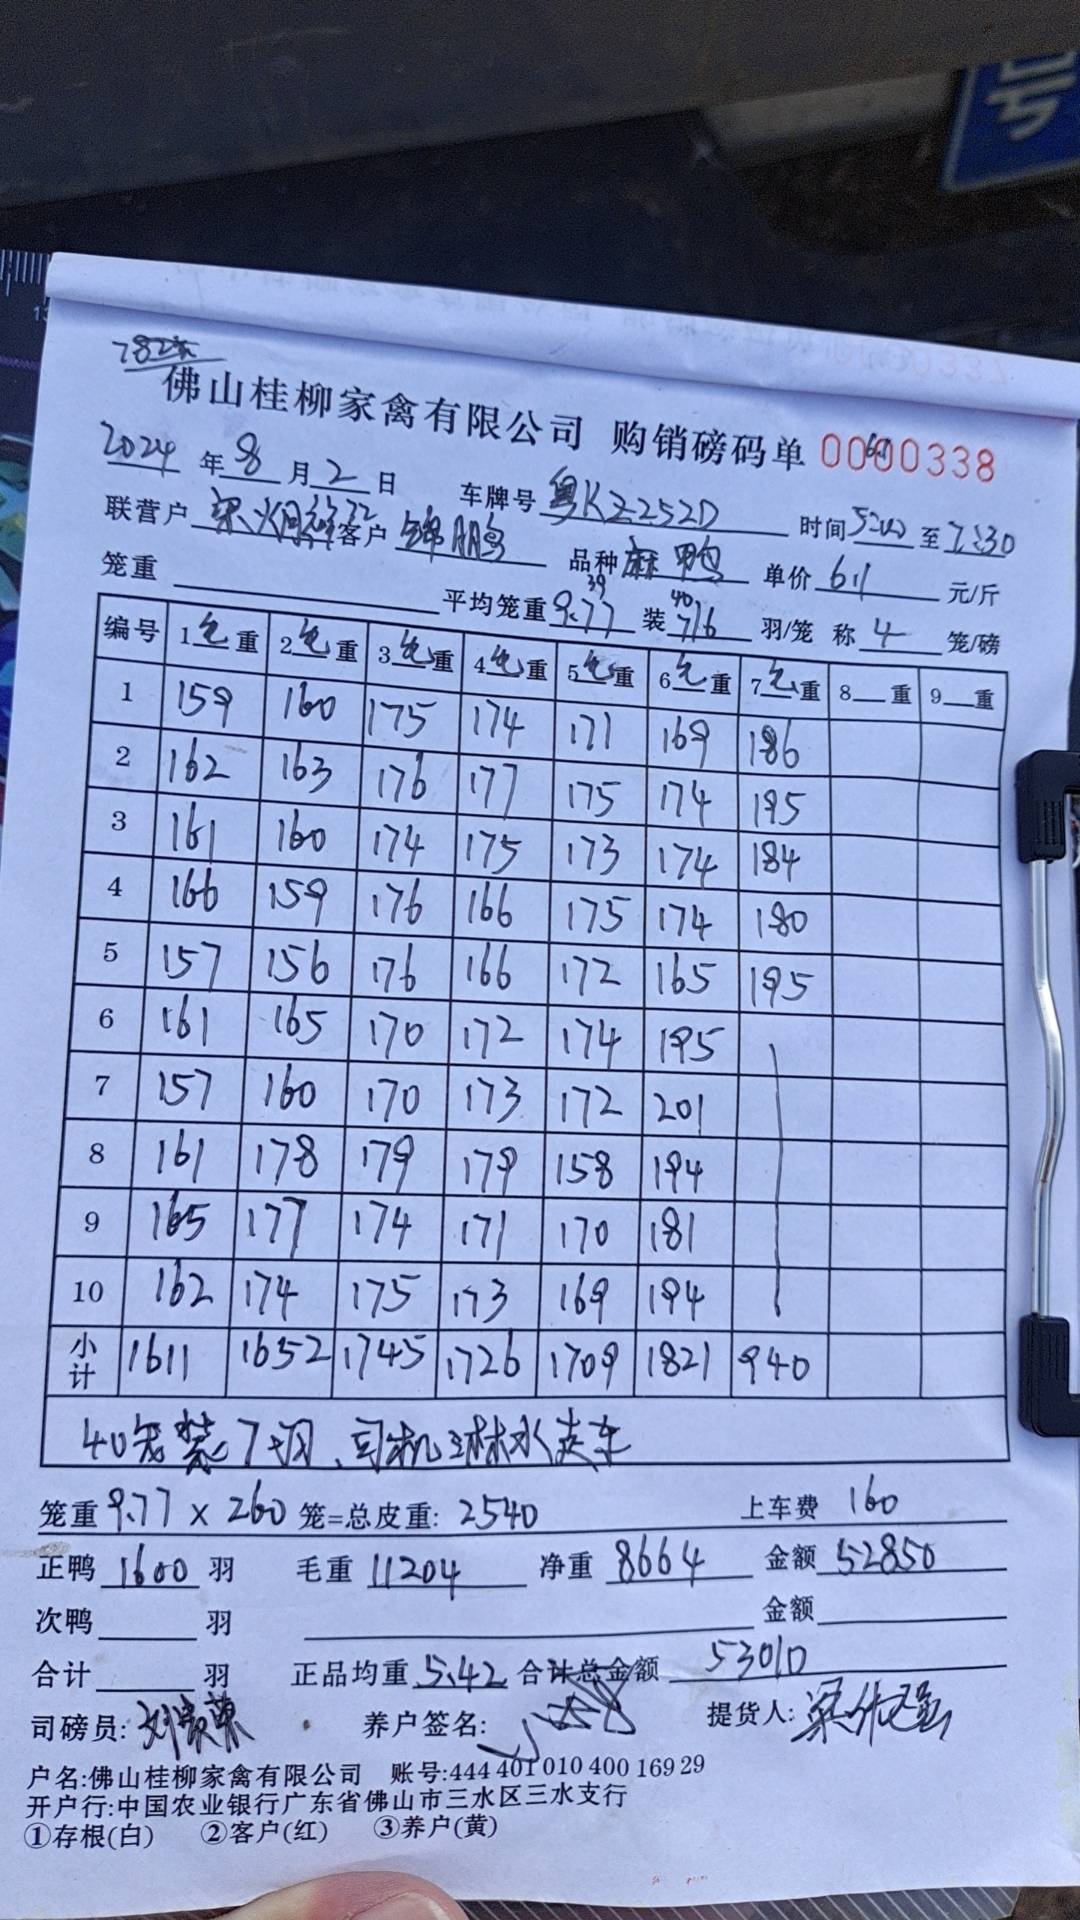 号
佛山桂柳家禽有限公司 购销磅码单 0000338
2024 年 8 月 2 日 车牌号 粤KZ252D 时间 5:00 至 7:30
联营户 客户 锦鹏 品种 麻鸭 单价 6.1 元/斤
笼重 平均笼重 9.77 装 39 40 7/6 羽/笼 称 4 笼/磅
编号 1 毛 重 2 毛 重 3 毛 重 4 毛 重 5 毛 重 6 毛 重 7 毛 重 8 重 9 重
1 159 160 175 174 171 169 186
2 162 163 176 177 175 174 195
3 161 160 174 175 173 174 184
4 166 159 176 166 175 174 180
5 157 156 176 166 172 165 195
6 161 165 170 172 174 195
7 157 160 170 173 172 201
8 161 178 179 179 158 194
9 165 177 174 171 170 181
10 162 174 175 173 169 194
小计 1611 1652 1745 1726 1709 1821 940
40笼装7羽、司机淋水走车
笼重 9.77 × 260 笼=总皮重: 2540 上车费 160
正鸭 1600 羽 毛重 11204 净重 8664 金额 52850
次鸭 羽 金额
合计 羽 正品均重 5.42 合计总金额 53010
司磅员: 养户签名: 提货人:
户名:佛山桂柳家禽有限公司 账号:444 401 010 400 169 29
开户行:中国农业银行广东省佛山市三水区三水支行
①存根(白) ②客户(红) ③养户(黄)